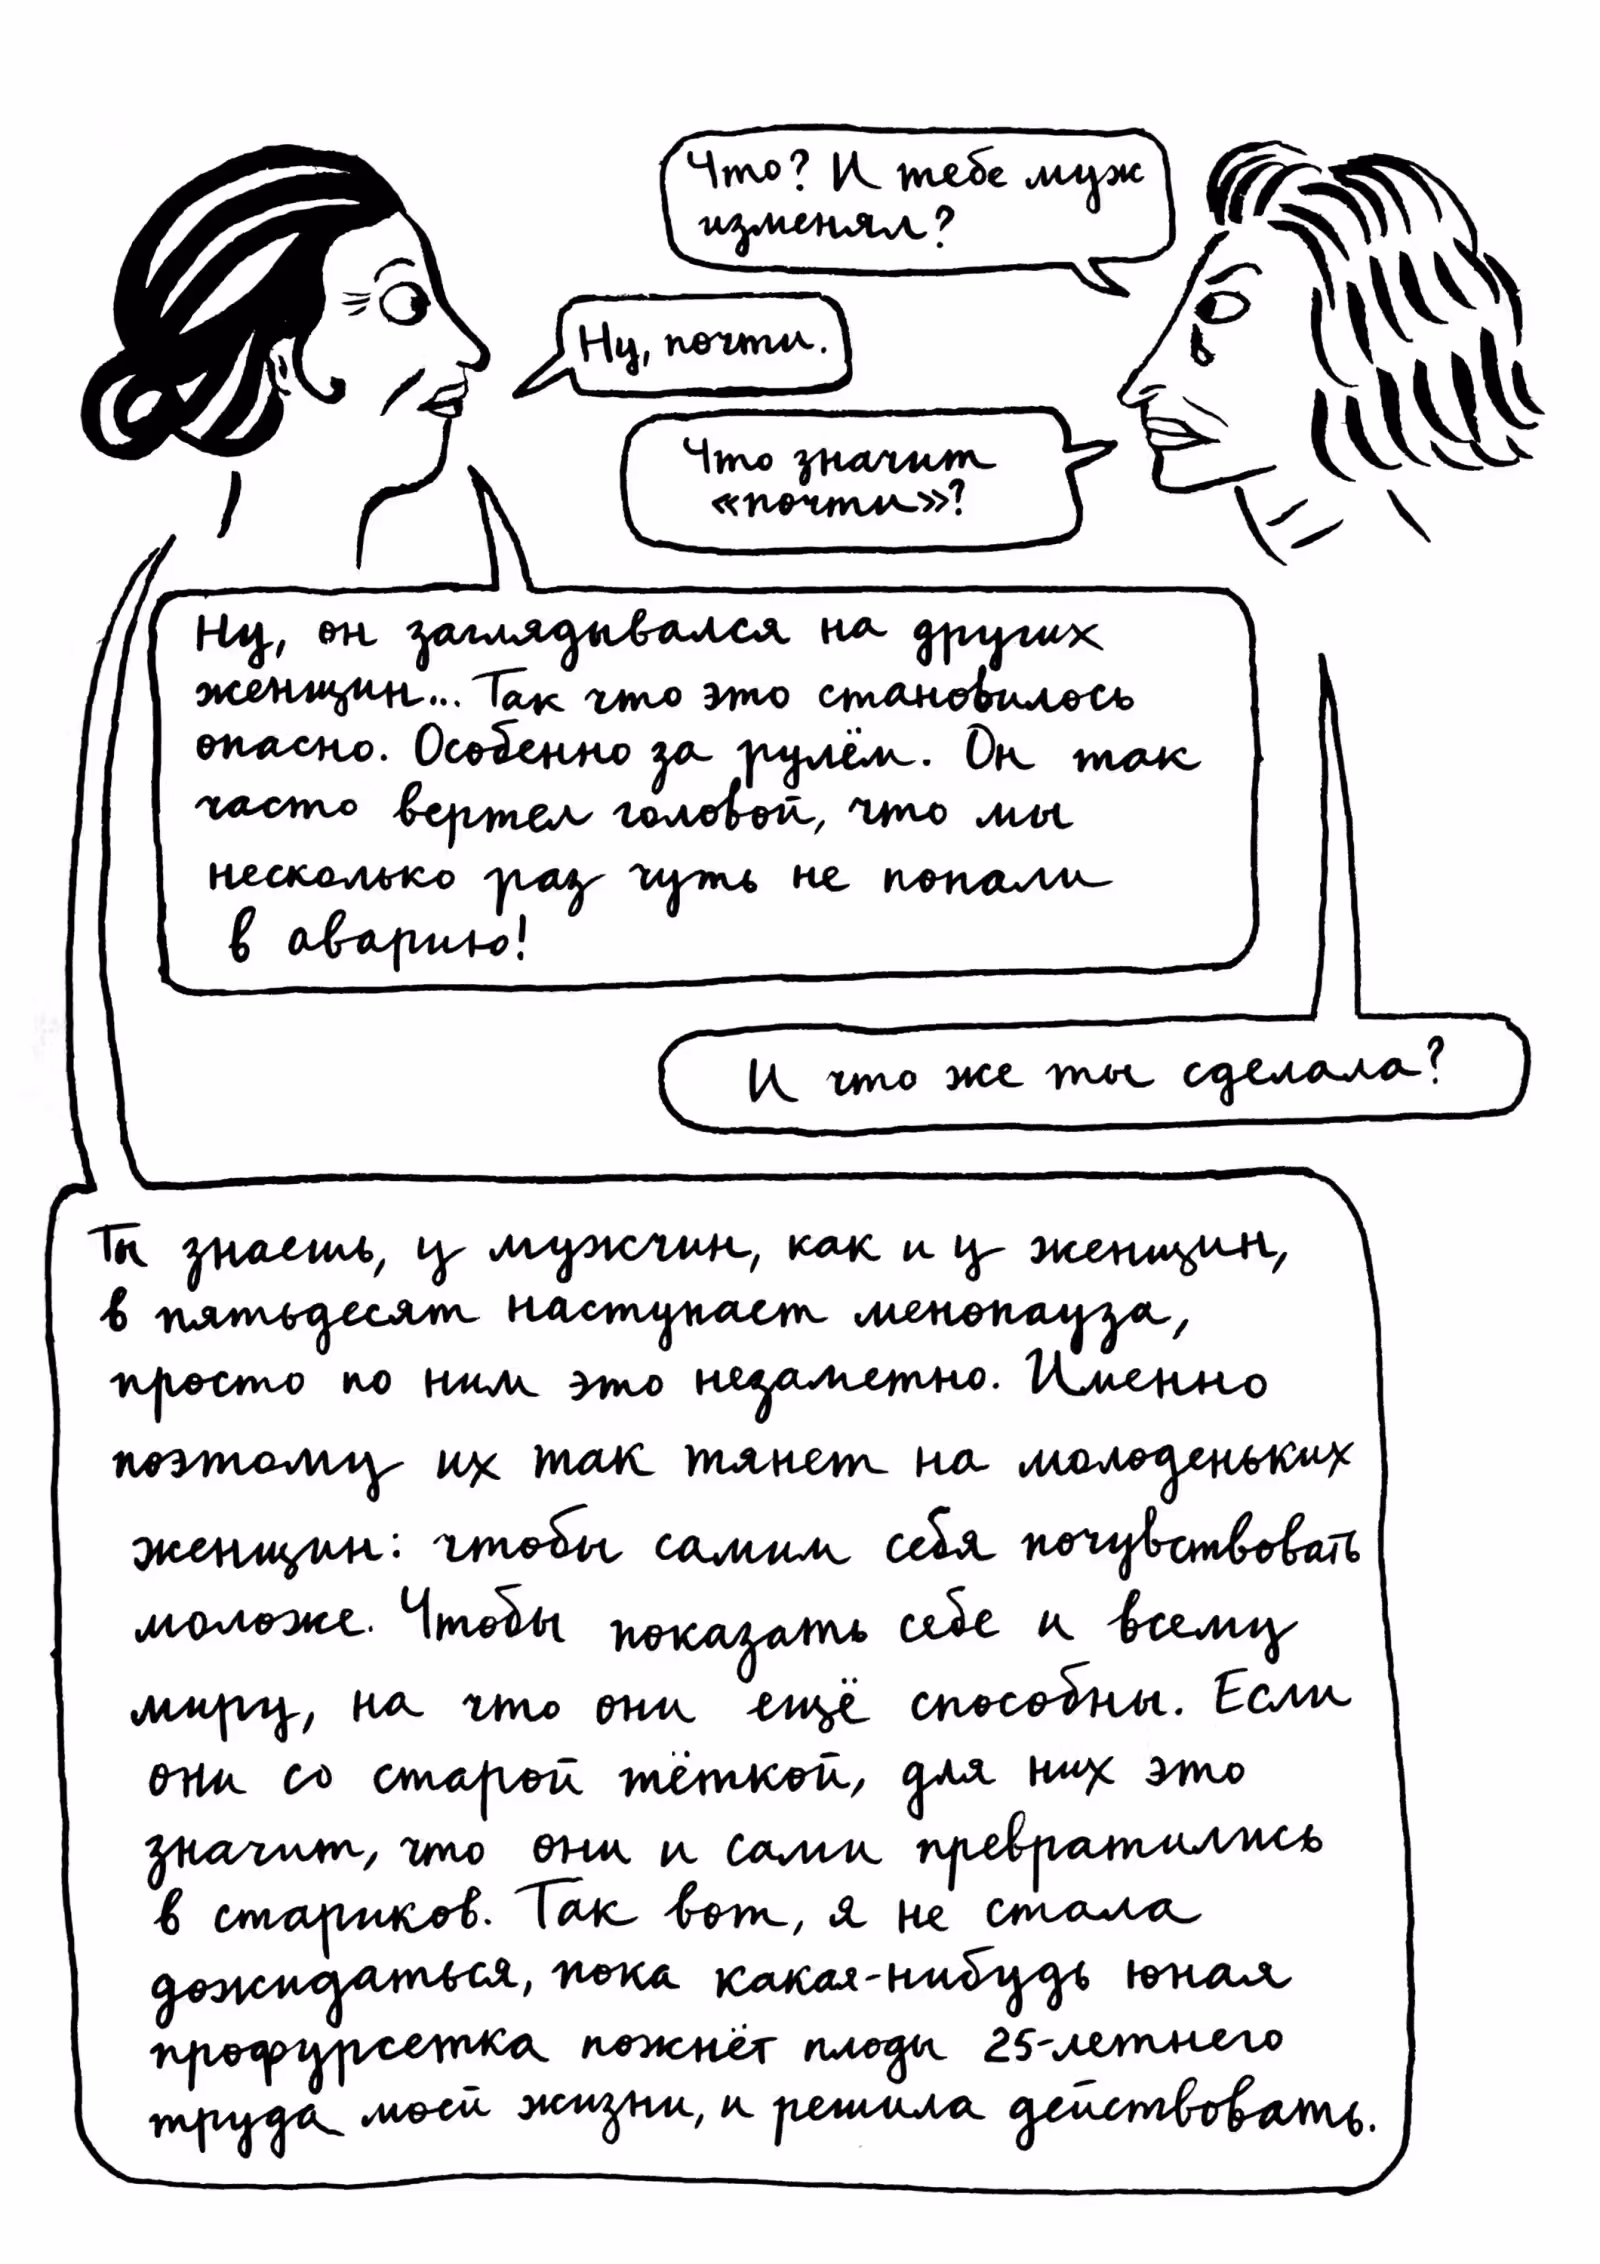 Что? И тебе муж
изменял?
Ну, почти.
Что значит
«почти»?
Ну, он заглядывался на других
женщин... Так что это становилось
опасно. Особенно за рулём. Он так
часто вертел головой, что мы
несколько раз чуть не попали
в аварию!
И что же ты сделала?
Ты знаешь, у мужчин, как и у женщин,
в пятьдесят наступает менопауза,
просто по ним это незаметно. Именно
поэтому их так тянет на молоденьких
женщин: чтобы самим себя почувствовать
моложе. Чтобы показать себе и всему
миру, на что они ещё способны. Если
они со старой тёткой, для них это
значит, что они и сами превратились
в стариков. Так вот, я не стала
дожидаться, пока какая-нибудь юная
профурсетка пожнёт плоды 25-летнего
труда моей жизни, и решила действовать.